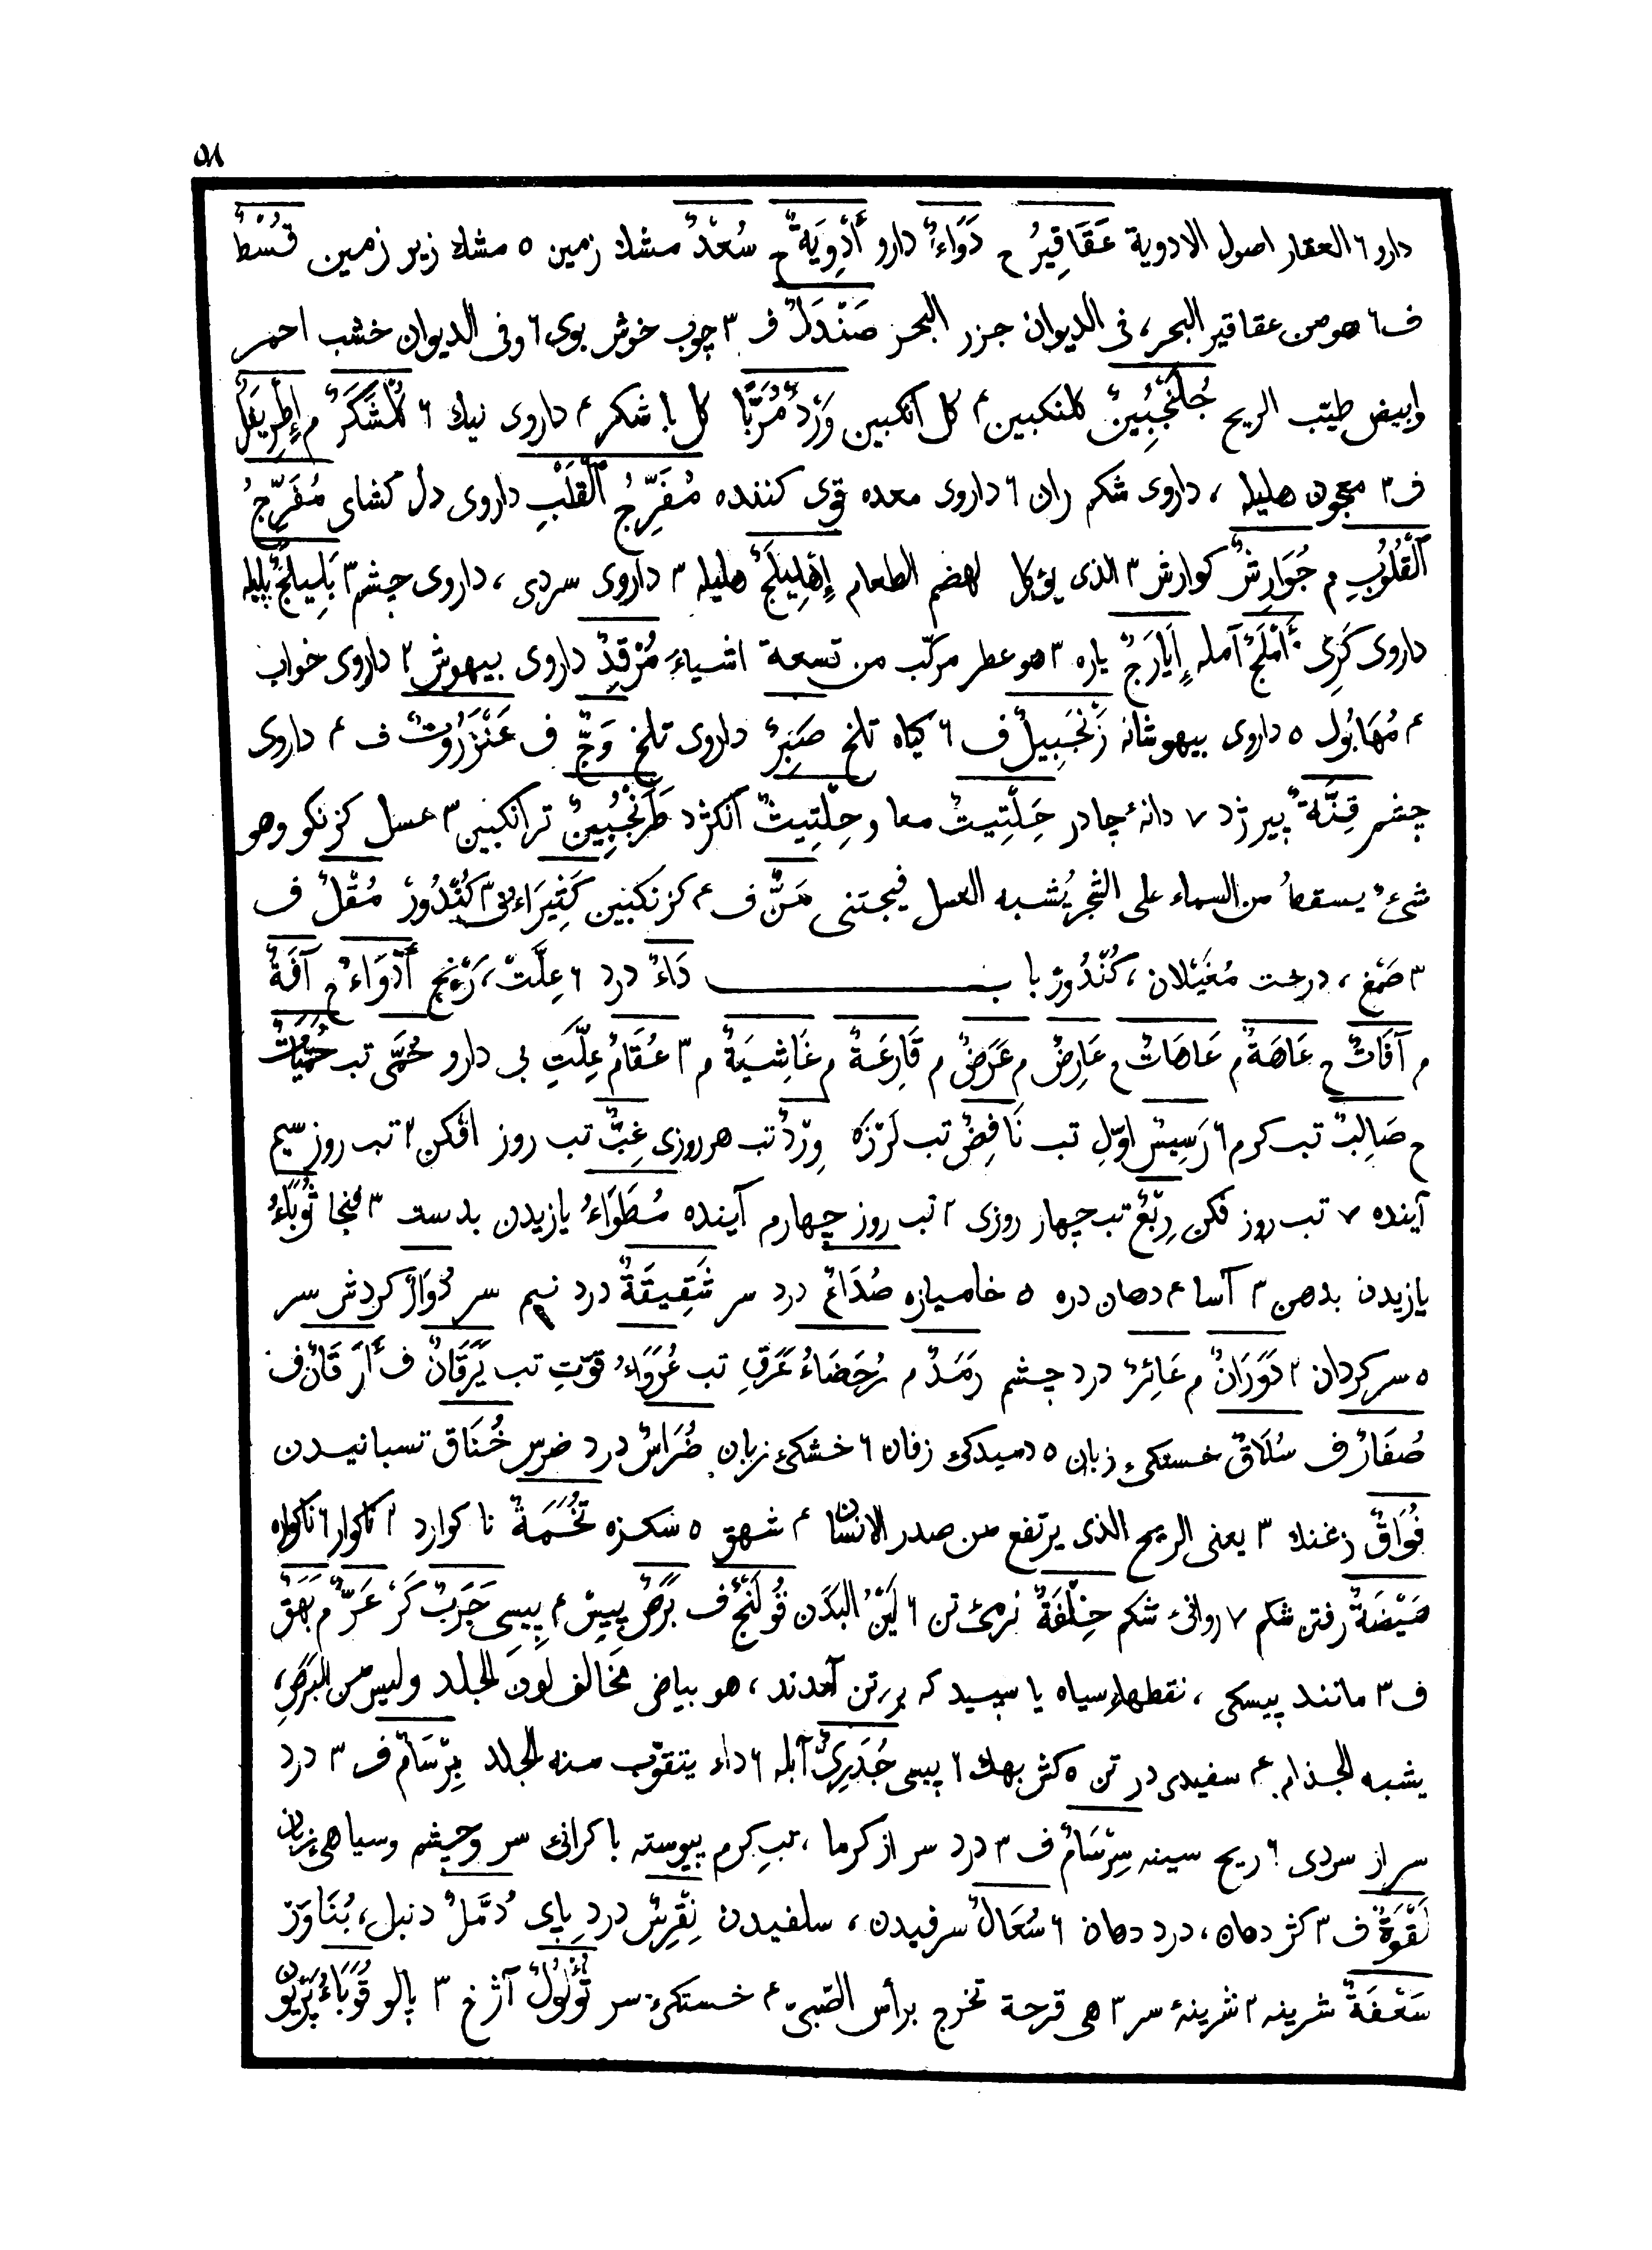 ٥٨
دارو ٦ العقار اصول الادوية عَقَاقِيرُ ح دَوَاءٌ دارو أَدْوِيَةٌ ح سُعْدٌ مشك زمين ٥ مشك زير زمين قُسْطٌ
ف ٦ هو من عقاقير البحر، فى الديوان جزر البحر صَنْدَلٌ ف ٣ چوب خوش بوى ٦ وفى الديوان خشب احمر
وابيض طيّب الريح جُلَنْجُبِينٌ كلنكبين ٢ كل انكبين وَرْدٌ مُرَبًّا كل با شكر ٢ داروى نيك ٦ كُلْشَكَرٌ م إِطْرِيفَلٌ
ف ٣ معجون هليله ، داروى شكم ران ٦ داروى معده قوى كننده مُفَرِّجُ ٱلْقَلْبِ داروى دل كشاى مُفَرِّجُ
ٱلْقُلُوبِ م جُوَارِشٌ كوارش ٣ الذى يؤكل لهضم الطعام إِهْلِيلَجٌ هليله ٣ داروى سردى ، داروى چشم ٣ بَلِيلَجٌ بليله
داروى كَرِى أَمْلَجٌ آمله إِيَارَجٌ ياره ٣ هو عطر مركّب من تسعة اشياءَ مُرْقِدٌ داروى بيهوش ٢ داروى خواب
٤ مُهَابُول ٥ داروى بيهوشانه زَنْجَبِيلٌ ف ٦ كياه تلخ صَبِرٌ داروى تلخ وَجٌّ ف عَنْزَرُوتٌ ف ٤ داروى
چشم قِنَّةٌ پيرزد ٧ دانهٔ چادر حَلْتِيتٌ معا و حِلْتِيثٌ انكژد طَرَنْجُبِينٌ ترانكبين ٣ عسل كزنكو وهو
شىءٌ يسقط من السماء على الشجر يُشبه العسل فيجتنى مَنٌّ ف ٤ كزنكبين كَثِيرَاء ٣ كُنْدُورْ مُقْلٌ ف
٣ صَمْغ ، درخت مُغَيْلان ، كُنْدُورْ باب دَاءٌ درد ٦ عِلَّتْ ، رَنْج أَدْوَاءٌ ح آفَةٌ
م آفَاتٌ ح عَاهَةٌ م عَاهَاتٌ ح عَارِضٌ م عَرَضٌ م قَارِعَةٌ م غَاشِيَةٌ م ٣ عُقَامٌ عِلّتِ بى دارو حُمَّى تب حُمَّيَاتٌ
ح صَالِبٌ تب كرم ٦ رَسِيسٌ اوّلِ تب نَافِضٌ تب لَرْزَه وِرْدٌ تب هر روزى غِبٌّ تب روز افكن ٢ تب روز سيم
آينده ٧ تب روز فكن رِبْعٌ تب چهار روزى ٢ تب روز چهارم آينده مُطَوَاءُ يازيدن بدست ٣ فنجا ثُوَبَاءُ
يازيدن بدهن ٣ آسا ٤ دهان دره ٥ خاميازه صُدَاعٌ درد سر شَقِيقَةٌ درد نيم سر دُوَارٌ كردش سر
٥ سركردان ٢ دَوَرَانٌ م عَائِرٌ درد چشم رَمَدٌ م رُحَضَاءُ عَرَقِ تب عُرَوَاءُ قوّتِ تب يَرَقَانٌ ف أَرَقَانٌ ف
صُفَارٌ ف سُلَاقٌ خستكىء زبان ٥ دميدكى زفان ٦ خشكىء زبان ضُرَاسٌ درد ضرس خُنَاق تسبانيدن
فُوَاقٌ زغنك ٣ يعنى الريح الذى يرتفع من صدر الانسان ٤ شهق ٥ سكزه تُخَمَةٌ نا كوارد ٢ ناكوار ٦ ناكواره
هَيْضَةٌ رفتن شكم ٧ روانىء شكم خِلْفَةٌ نرمىء تن ٦ لَيْنُ البَدَن قُولَنْجٌ ف بَرَصٌ پيس ٤ پيسى جَرَبٌ كَرْ عَرٌّ م بَهَقٌ
ف ٣ مانند پيسكى ، نقطهاء سياه يا سپيد كه بر تن آمدند ، هو بياض مخالف لون الجلد وليس من البَرَصِ،
يشبه الجذام ٤ سفيدى در تن ٥ كثر بهك ٦ پيسى جُدَرِىٌّ آبله ٦ داء يتقوّب منه الجلد بِرْسَامٌ ف ٣ درد
سر از سردى ٦ ريح سينه سِرْسَامٌ ف ٣ درد سر از كرما ، تبِ كرم پيوسته با كرانىء سر وچشم وسياهىء زبان
لَقْوَةٌ ف ٣ كژ دهان ، درد دهان ٦ سُعَالٌ سرفيدن ، سلفيدن نِقْرِسٌ دردِ پاى دُمَّلٌ دنبل ، بُنَاوَرْ
سَعْفَةٌ شرينه ٢ شرينهٔ سر ٣ هى قرحة تخرج برأس الصّبىّ ٤ خستكىء سر ثُؤْلُولٌ آژخ ٣ پالو قُوَبَاءُ بَرْيُونْ